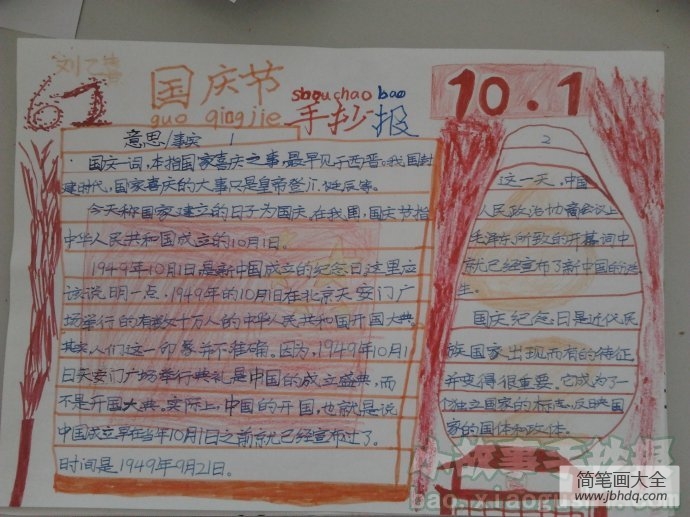 刘乙
62
国庆节
guo qingjie
shouchao bao
手抄报
10.1
意思/事实 1
国庆一词,本指国家喜庆之事,最早见于西晋。我国封
建时代,国家喜庆的大事只是皇帝登
今天称国家建立的日子为国庆。在我国,国庆节指
中华人民共和国成立的10月1日。
1949年10月1日是新中国成立的纪念日。这里应
该说明一点,1949年的10月1日在北京天安门广
场举行的有数十万人的中华人民共和国开国大典。
其实,人们这一印象并不准确。因为,1949年10月1
日天安门广场举行典礼是中国的成立盛典,而
不是开国大典。实际上,中国的开国,也就是说
中国成立早在当年10月1日之前就已经宣布过了。
时间是1949年9月21日。
2
这一天,中国
人民政治协商会议上
毛泽东所致的开幕词中
就已经宣布了新中国的诞
生。
国庆纪念日是近代民
族国家出现而有的特征,
并变得很重要。它成为了一
个独立国家的标志,反映国
家的国体和政体。
简笔画大全
www.jbhdq.com